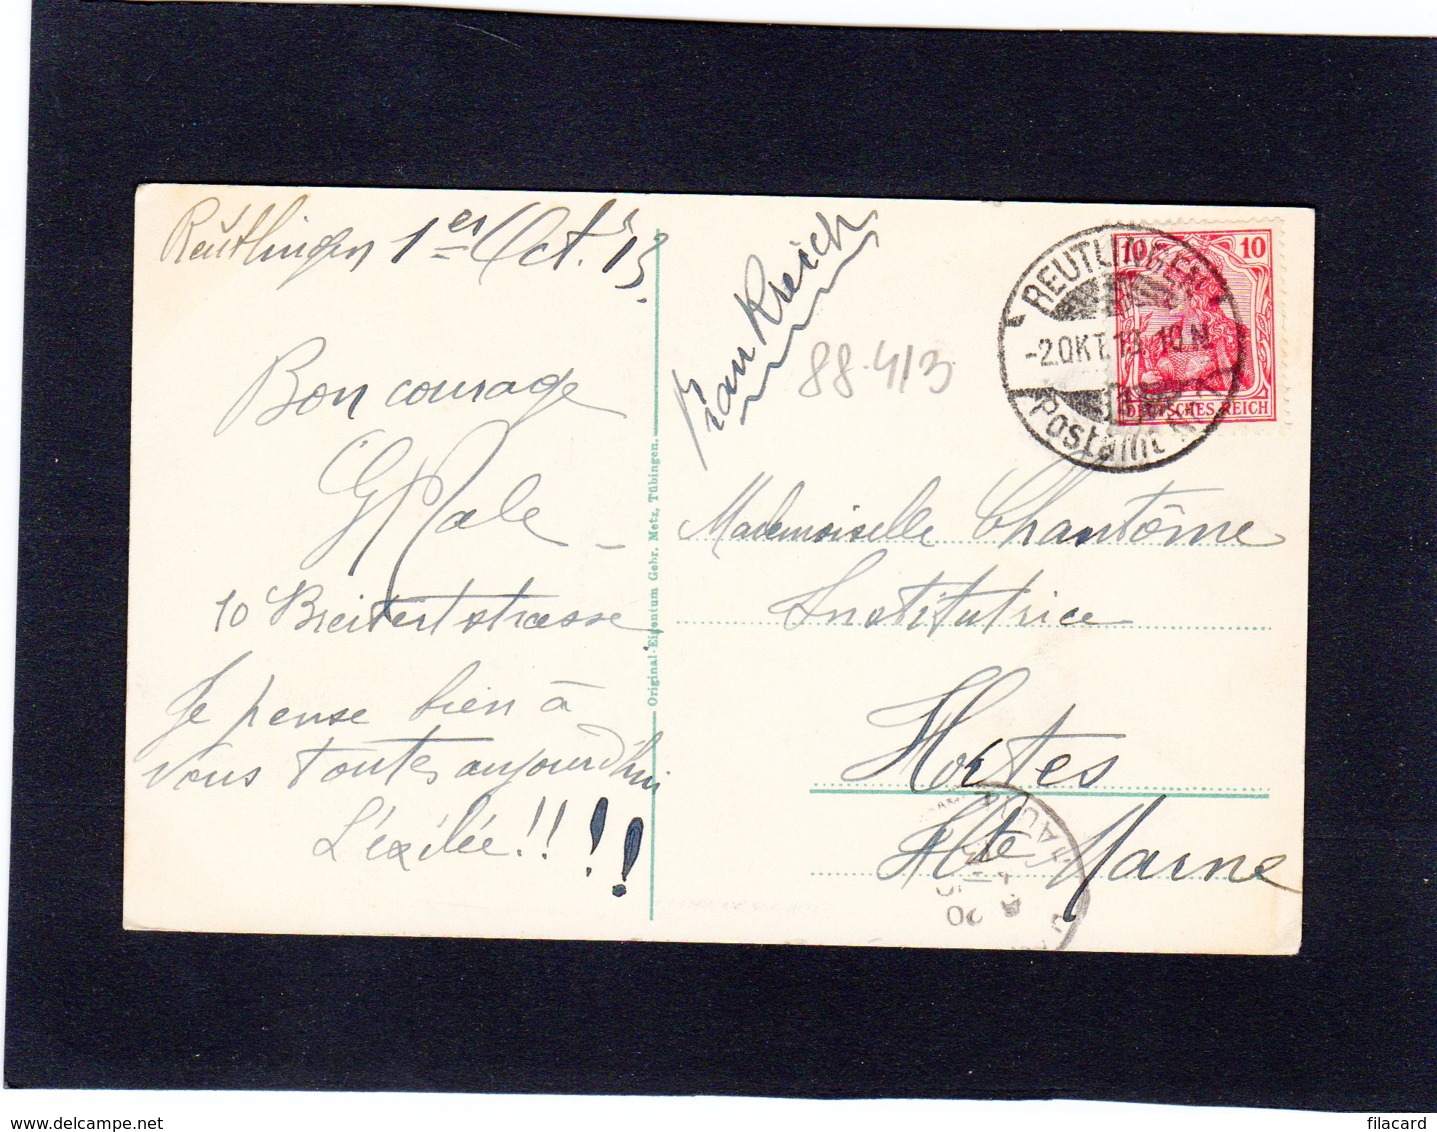 Reutlingen 1er Oct. 13.
Bon courage
10 Breitertstrasse
Je pense bien à
vous toutes aujourd'hui
L'exilée!!!!
Original-Eigentum Gebr. Metz, Tübingen.
88-413
REUTLINGEN
-2.OKT.13.
Postamt
10 10
DEUTSCHES REICH
Mademoiselle Chantôme
Institutrice
Hortes
Hte Marne
www.delcampe.net
filacard